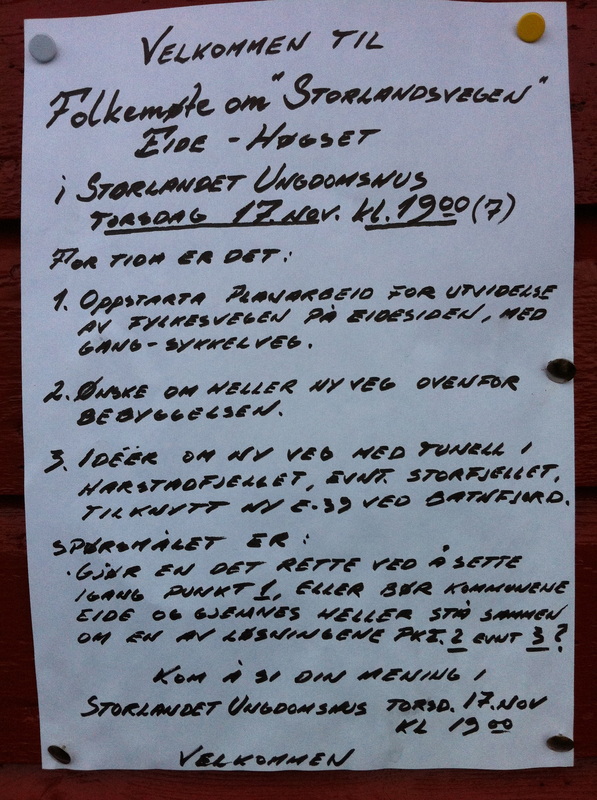 VELKOMMEN TIL
Folkemøte om "STORLANDSVEGEN"
EIDE - HØGSET
i STORLANDET UNGDOMSHUS
TORSDAG 17. NOV. kl. 19 00 (7)
FOR TIDA ER DET:
1. OPPSTARTA PLANARBEID FOR UTVIDELSE
AV FYLKESVEGEN PÅ EIDESIDEN, MED
GANG-SYKKELVEG.
2. ØNSKE OM HELLER NY VEG OVENFOR
BEBYGGELSEN.
3. IDÉER OM NY VEG MED TUNELL I
HARSTADFJELLET, EVNT. STORFJELLET,
TILKNYTT NY E-39 VED BATNFJORD.
SPØRSMÅLET ER:
GJØR EN DET RETTE VED Å SETTE
IGANG PUNKT 1, ELLER BØR KOMMUNENE
EIDE OG GJEMNES HELLER STÅ SAMMEN
OM EN AV LØSNINGENE PKT. 2 EVNT 3?
KOM Å SI DIN MENING I
STORLANDET UNGDOMSHUS TORSD. 17. NOV
KL 19 00
VELKOMMEN